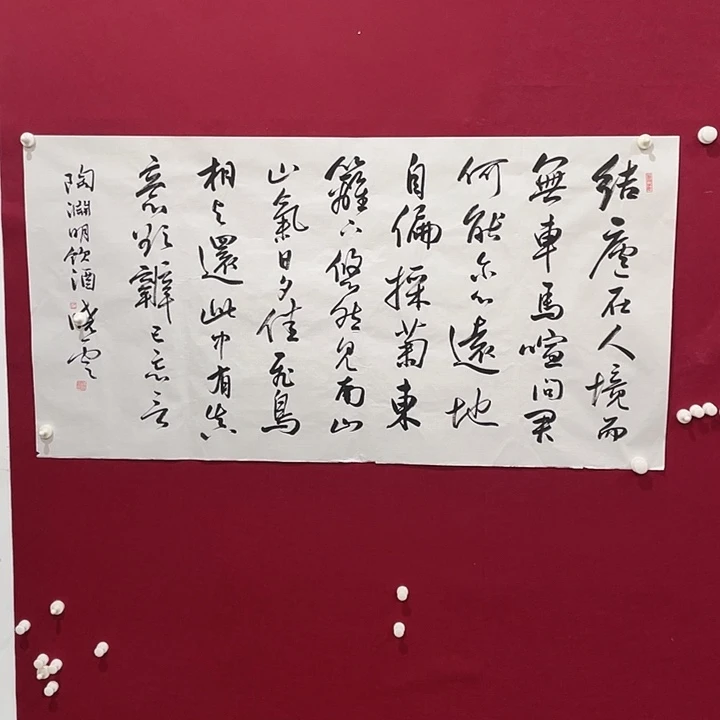 結廬在人境而
無車馬喧問君
何能尔心遠地
自偏採菊東
籬下悠然見南山
山氣日夕佳飛鳥
相与還此中有真
意欲辯已忘言
陶淵明飲酒 曉雲